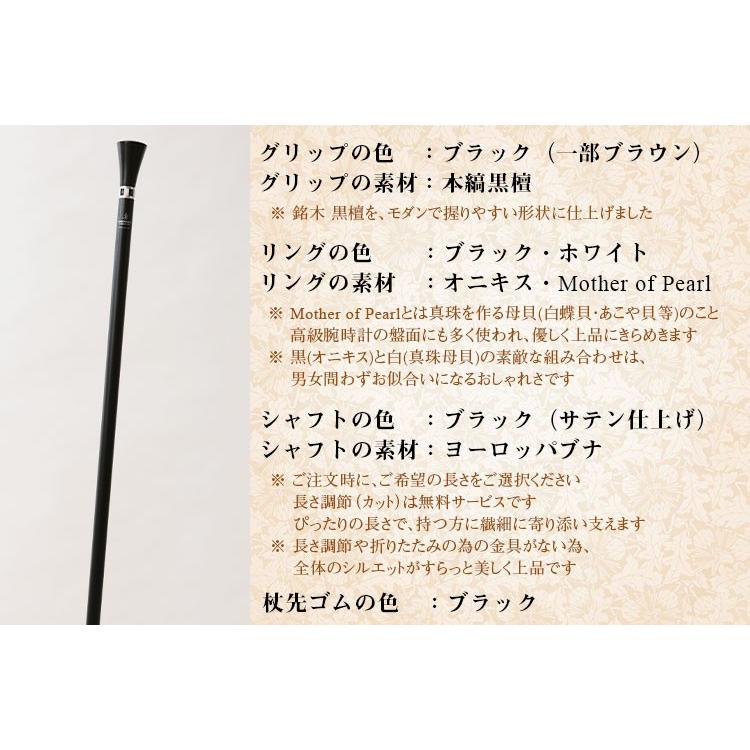 グリップの色　：ブラック（一部ブラウン）
グリップの素材：本縞黒檀
※ 銘木 黒檀を、モダンで握りやすい形状に仕上げました
リングの色　　：ブラック・ホワイト
リングの素材　：オニキス・Mother of Pearl
※ Mother of Pearlとは真珠を作る母貝(白蝶貝・あこや貝等)のこと
高級腕時計の盤面にも多く使われ、優しく上品にきらめきます
※ 黒(オニキス)と白(真珠母貝)の素敵な組み合わせは、
男女問わずお似合いになるおしゃれさです
シャフトの色　：ブラック（サテン仕上げ）
シャフトの素材：ヨーロッパブナ
※ ご注文時に、ご希望の長さをご選択ください
長さ調節（カット）は無料サービスです
ぴったりの長さで、持つ方に繊細に寄り添い支えます
※ 長さ調節や折りたたみの為の金具がない為、
全体のシルエットがすらっと美しく上品です
杖先ゴムの色　：ブラック